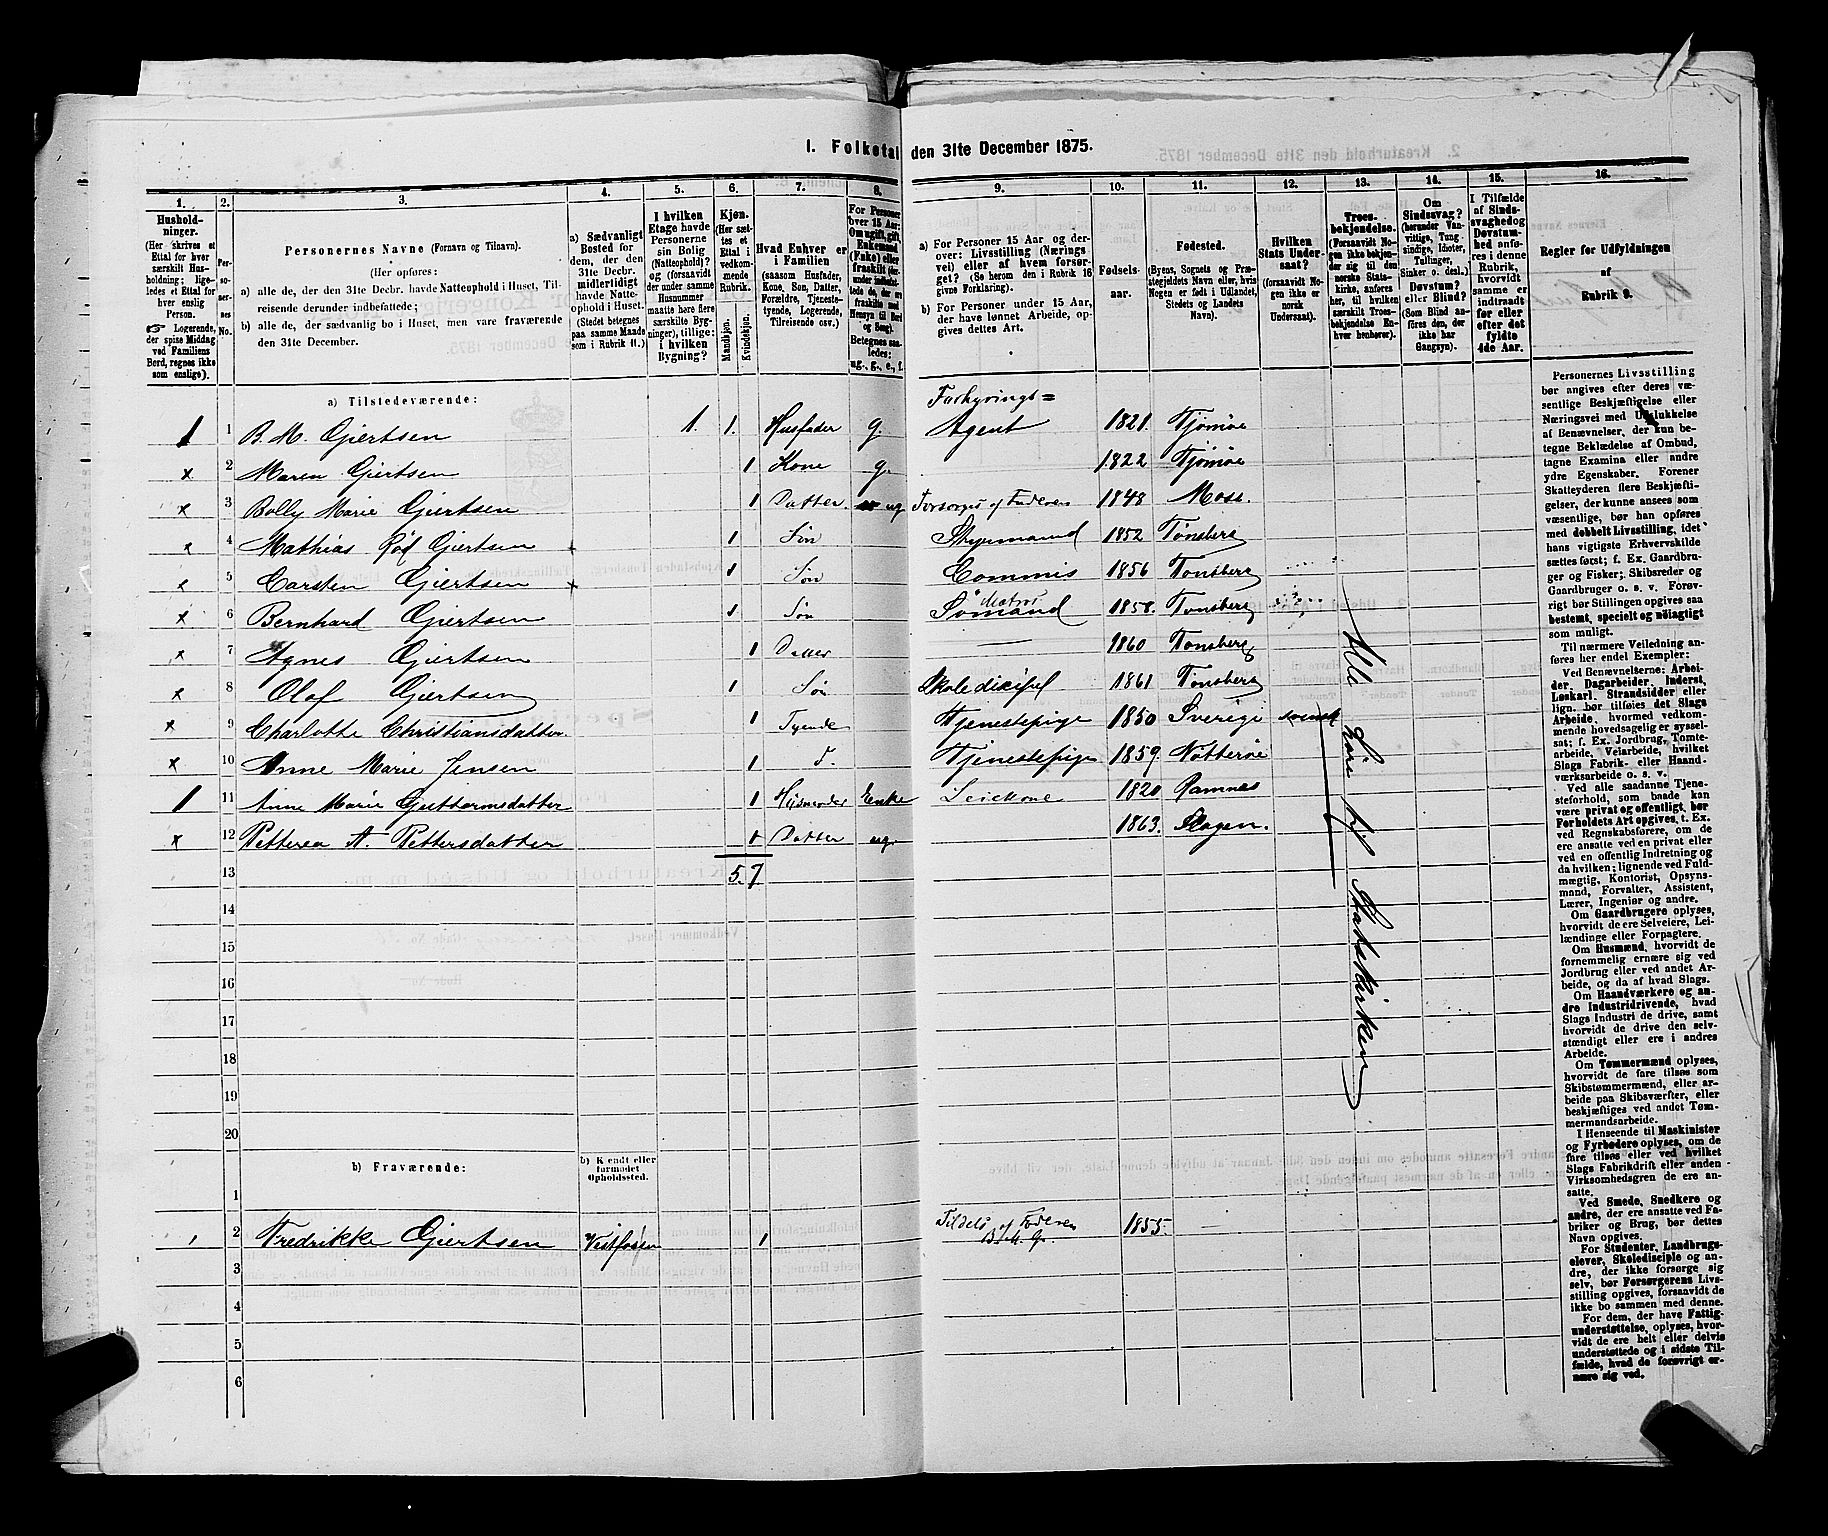 1. Folketal den 31te December 1875.
1. 2. 3. 4. 5. 6. 7. 8. 9. 10. 11. 12. 13. 14. 15. 16.
Hushold-
ninger.
(Her skrives et
Ettal for hver
særskilt Hus-
holdning; lige-
ledes et Ettal for
hver enslig
Person.
☞ Logerende,
der spise Middag
ved Familiens
Bord, regnes ikke
som enslige).
Per-
so-
ner-
nes
No.
Personernes Navne (Fornavn og Tilnavn).
(Her opføres:
a) alle de, der den 31te Decbr. havde Natteophold i Huset, Til-
reisende derunder indbefattede;
b) alle de, der sædvanlig bo i Huset, men vare fraværende
den 31te December.
a) Sædvanligt
Bosted for
dem, der den
31te Decbr.
midlertidigt
havde Natte-
ophold i Huset.
(Stedet betegnes
paa samme Maade
som i Rubrik 11.)
I hvilken
Etage havde
Personerne
sin Bolig
(Natteophold)?
og (forsaavidt
der under samme
Husnummer
maatte høre flere
særskilte Byg-
ninger), tillige:
i hvilken
Bygning?
Kjøn.
(Her sæt-
tes et
Ettal i
vedkom-
mende
Rubrik.
Mandkjøn.
Kvindekjøn.
Hvad Enhver er
i Familien
(saasom Husfader,
Kone, Søn, Datter,
Forældre, Tjeneste-
tyende, Logerende,
Tilreisende osv.)
For Personer
over 15 Aar:
Om ugift, gift,
Enkemand
(Enke) eller
fraskilt
Betegnes saa-
ledes:
ug., g., e., f.
a) For Personer 15 Aar og der-
over: Livsstilling (Nærings-
vei) eller af hvem forsør-
get? (Se herom den i Rubrik 16
givne Forklaring).
b) For Personer under 15 Aar,
der have lønnet Arbeide, op-
gives dettes Art.
Fødsels-
aar.
Fødested.
(Byens, Sognets og Præ-
stegjeldets Navn eller, hvis
Nogen er født i Udlandet,
Stedets og Landets
Navn).
Hvilken
Stats Under-
saat?
(forsaavidt No-
gen ikke er
norsk
Undersaat).
Troes-
bekjendelse.
(Forsaavidt No-
gen ikke bekjen-
der sig til den
norske Stats-
kirke, anføres
her, til hvilken
særskilt Troes-
bekjendelse En-
hver henhører).
Om
Sindssvag?
(herunder Van-
vittige, Tung-
sindige, Idioter,
Tullinger,
Sinker o. desl.)
Døvstum?
eller Blind?
(Som Blind an-
føres den, der
ikke har
Gangsyn).
I Tilfælde
af Sinds-
svaghed og
Døvstum-
hed anfø-
res i denne
Rubrik,
hvorvidt
samme er
indtraadt
før eller
efter det
fyldte
4de Aar.
Regler for Udfyldningen
af
Rubrik 9.
a) Tilstedeværende:
Forhyrings=
1 1 B. M. Gjertsen 1. 1. Husfader g. Agent 1821. Tjømøe
x 2 Maren Gjertsen 1 Kone g. 1822 Tjømøe
x 3 Bolly Marie Gjertsen 1 Datter. ug Forsørges af Faderen 1848 Moss.
x 4 Mathias Rød Gjertsen 1 Søn Styrmand 1852 Tønsberg
x 5 Carsten Gjertsen 1 Søn Commis 1856 Tonsberg
Matros
x 6 Bernhard Gjertsen 1 Søn Sømand 1858. Tonsberg
x 7 Agnes Gjertsen 1 Datter — 1860 Tonsberg
x 8 Olaf Gjertsen 1 Søn Skoledisipel 1861 Tonsberg
x 9 Charlotte Christiansdatter 1 Tyende Tjenestepige 1850 Sverige svensk
x 10 Anne Marie Jensen 1 T. Tjenestepige 1859. Nøtterøe
1 11 Anne Marie Guttormsdatter 1 Husmoder Enke Leiekone 1820 Ramnes
x 12 Petterea A. Pettersdatter 1 Datter ug. 1863. Slagen.
13 5. 7
14
15
16
17
18
19
20
Alle høre til Statskirken
b) Fraværende:
b) Kendt eller
formodet
Opholdssted.
1
1 2 Fredrikke Gjertsen Vestfossen 1 Tildels af Faderen 1855.
B. M. G.
3
4
5
6
Personernes Livsstilling
bør angives efter deres væ-
sentlige Beskjæftigelse eller
Næringsvei med Udelukkelse
af Benævnelser, der kun be-
tegne Beklædelse af Ombud,
tagne Examina eller andre
ydre Egenskaber. Forener
Skatteyderen flere Beskjæfti-
gelser, der kunne ansees som
væsentlige, bør han opføres
med dobbelt Livsstilling, idet
hans vigtigste Erhvervskilde
sættes først; f. Ex. Gaardbru-
ger og Fisker; Skibsreder og
Gaardbruger o. s. v. Forøv-
rigt bør Stillingen opgives saa
bestemt, specielt og nøiagtigt
som muligt.
Til nærmere Veiledning an-
føres her endel Exempler:
Ved Benævnelserne: Arbei-
der, Dagarbeider, Inderst,
Løskarl, Strandsidder eller
lign. bør tilføies det Slags
Arbeide, hvormed vedkom-
mende hovedsagelig er syssel-
sat; f. Ex. Jordbrug, Tomte-
arbeide, Veiarbeide, hvilket
Slags Fabrik- eller Haand-
værksarbeide o. s. v.
Ved alle saadanne Tjene-
steforhold, som baade kan
være privat og offentligt, bør
Forholdets Art opgives, t. Ex.
ved Regnskabsførere, om de
ere ansatte ved en privat eller
ved en offentlig Indretning og
da hvilken; lignende ved Fuld-
mægtig, Kontorist, Opsyns-
mand, Forvalter, Assistent,
Lærer, Ingeniør og andre.
Om Gaardbrugere oplyses,
hvorvidt de ere Selveiere, Lei-
lændinge eller Forpagtere.
Om Husmænd, hvorvidt de
fornemmelig ernære sig ved
Jordbrug eller ved andet Ar-
beide, og da af hvad Slags.
Om Haandværkere og an-
dre Industridrivende, hvad
Slags Industri de drive, samt
hvorvidt de drive den selv-
stændigt eller ere i andres
Arbeide.
Om Tømmermænd oplyses,
hvorvidt de fare tilsøs som
Skibstømmermænd, eller ar-
beide paa Skibsværfter, eller
beskjæftiges ved andet Tøm-
mermandsarbeide.
I Henseende til Maskinister
og Fyrbødere oplyses, om de
fare tilsøs eller ved hvilket
Slags Fabrikdrift eller anden
Virksomhedsgren de ere an-
satte.
Ved Smede, Snedkere og
andre, der ere ansatte ved Fa-
briker og Brug, bør dettes
Navn opgives.
For Studenter, Landbrugs-
elever, Skoledisciple og an-
dre, der ikke forsørge sig
selv, bør Forsørgerens Livs-
stilling opgives, forsaavidt de
ikke bo sammen med denne.
For dem, der have Fattig-
understøttelse, oplyses, hvor-
vidt de ere helt eller delvis
understøttede og i sidste Til-
fælde, hvad de forøvrigt er-
nære sig ved.